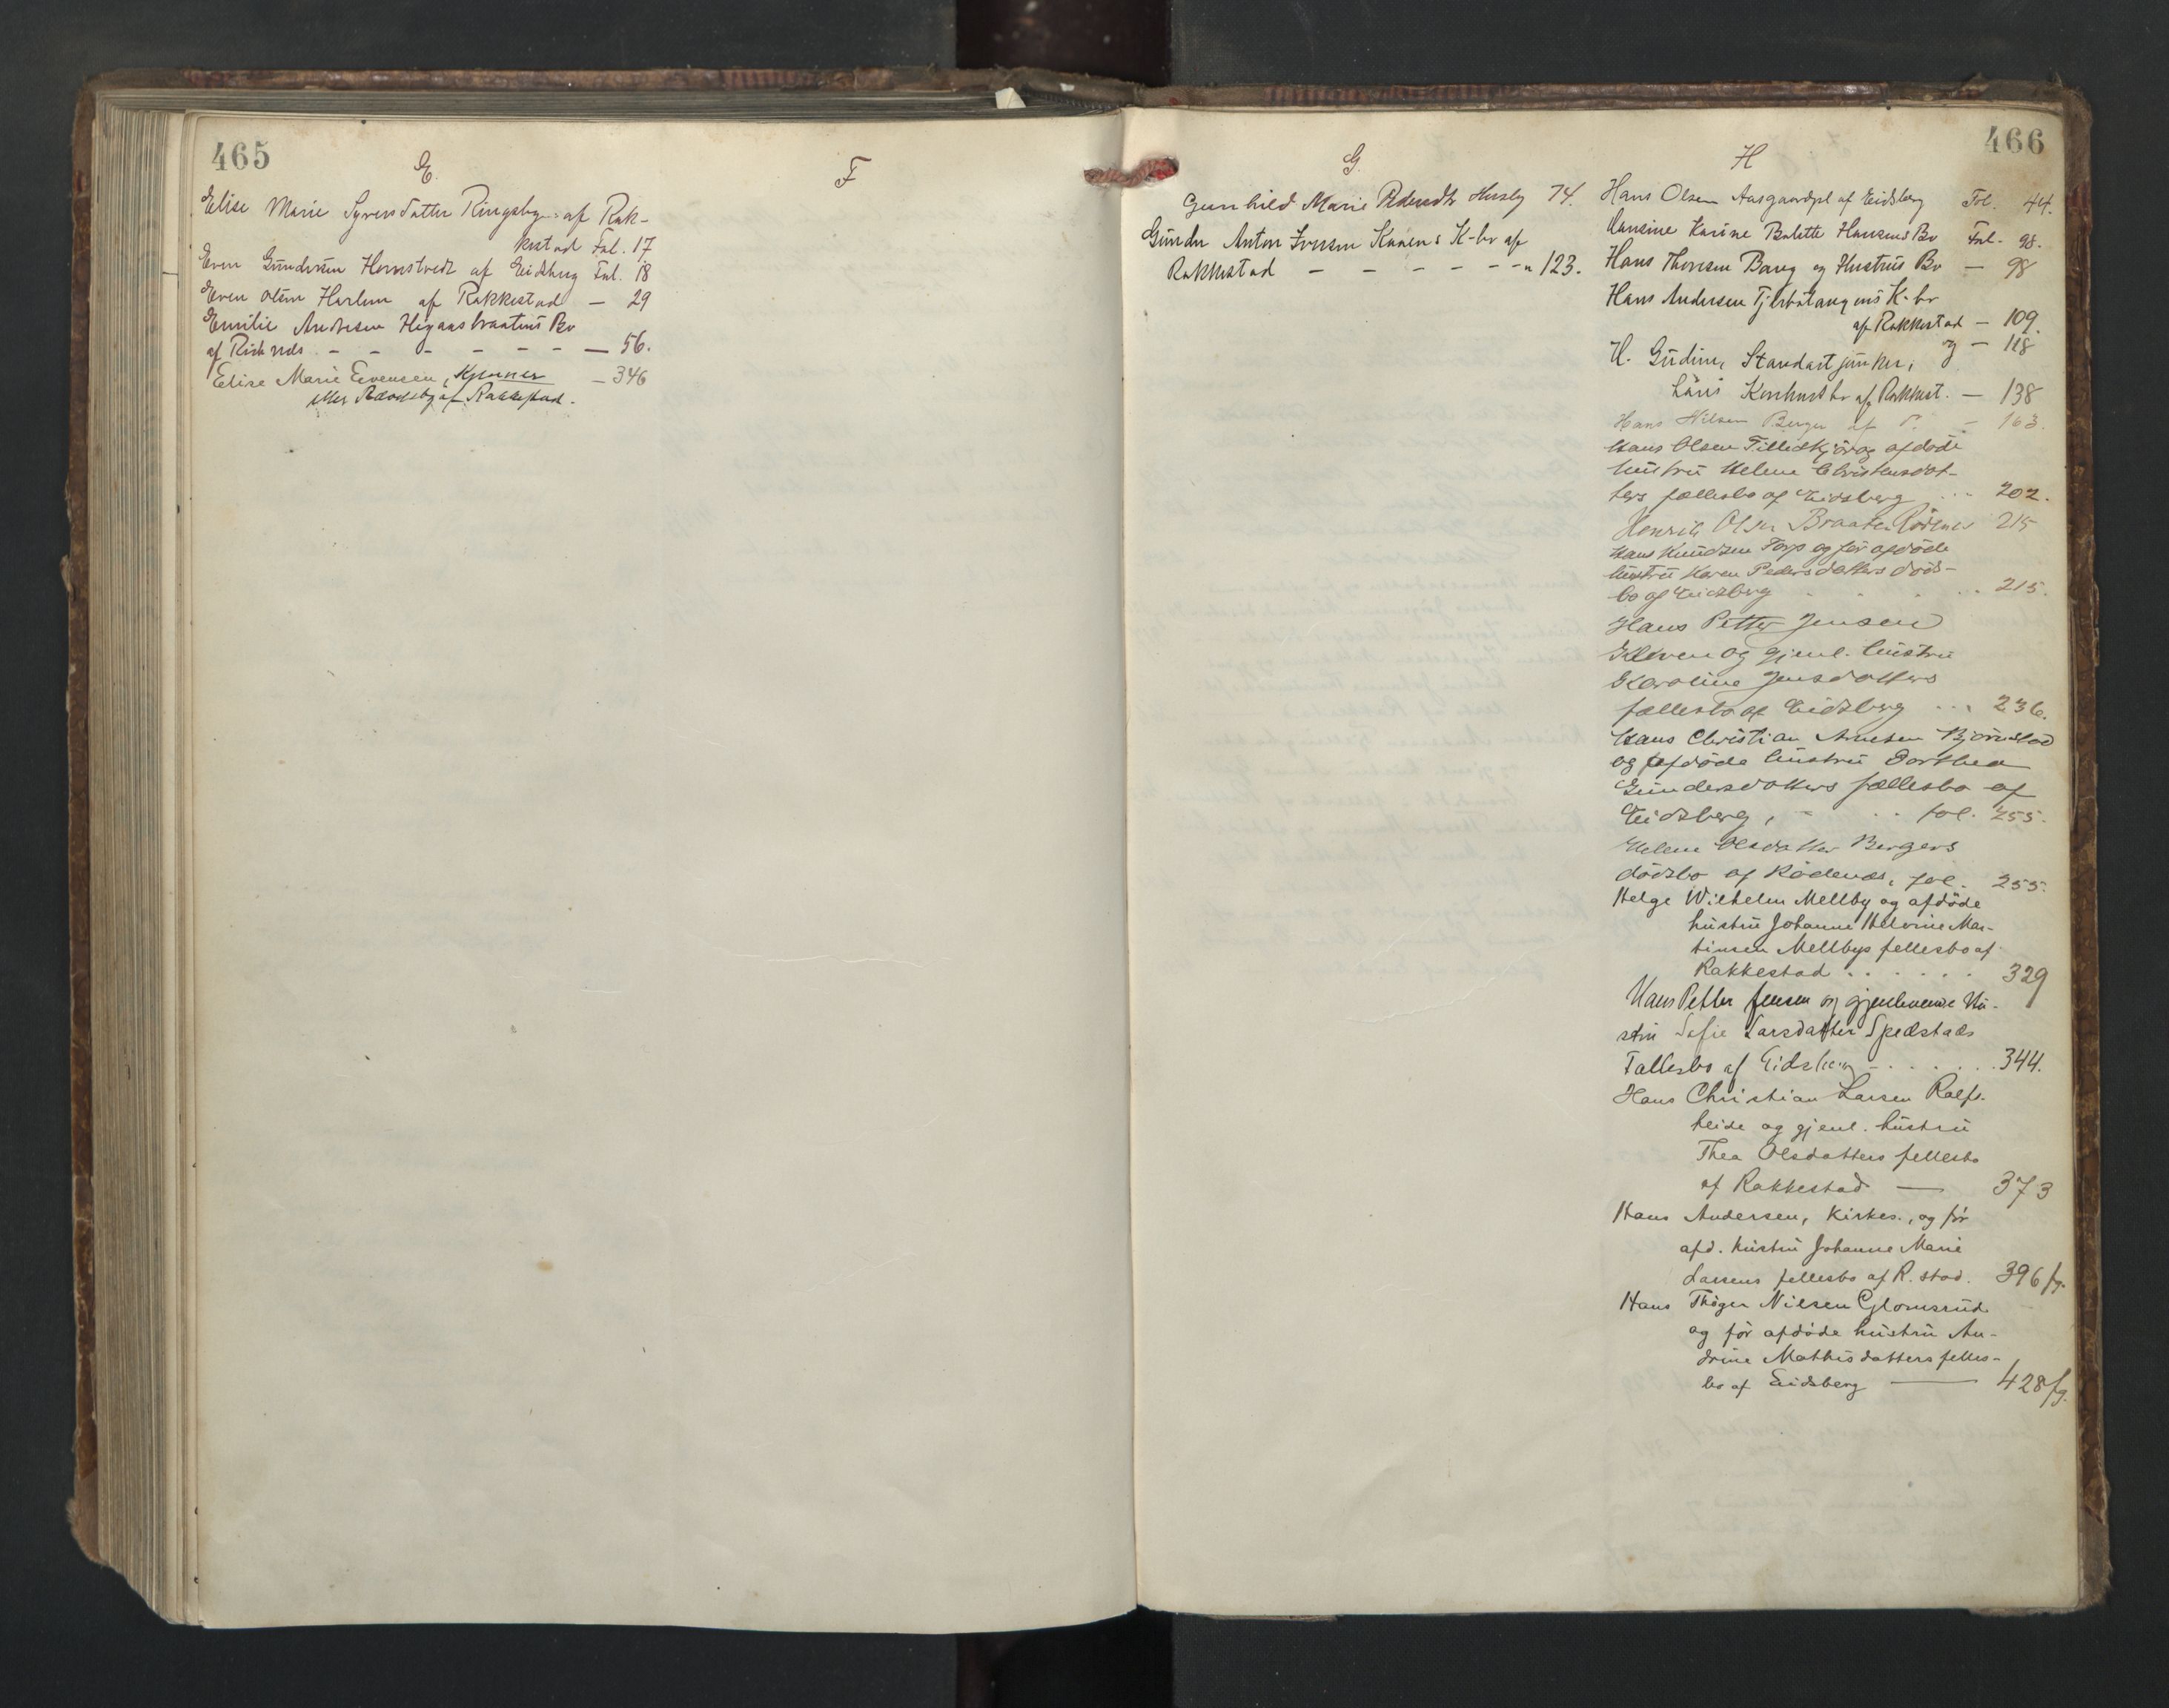 465
E.
Elise Marie Syversdatter Ringsby af Rak-
kestad Fol. 17
Even Gundersen Hornstvedt af Eidsberg Fol. 18
Even Olsen Harlem af Rakkestad — 29
Emilie Andresen Bo
af — 56.
Elise Marie Evensen, — 346
eller af Rakkestad.
F
G.
Gunhild Marie Pedersdtr Husby 74.
Gunder Anton Iversen Kanens K-bo af
Rakkestad - - - - - - " 123.
466
H
Hans Olsen Aasgaardpl af Eidsberg Fol. 44.
Hansine Karine Bolette Hansens Bo Fol. 98.
Hans Thoresen Baug og Hustrus Bo — 98
Hans Andersen K-bo
af Rakkestad — 109.
og — 118
H. Gudim, Standartjunker,
Konkursbo af Rakkest. — 138
Hans Nilsen Berger af — 163.
Hans Olsen og afdøde
hustru Helene Christensdat-
ters fællesbo af Eidsberg ... 202.
Henrik Olsen Braaten Rødenes 215
Hans Knudsen Torp og før afdøde
hustru Karen Pedersdatters døds-
bo af Eidsberg . . . . 215.
Hans Petter Jensen
Kleven og gjenl. hustru
Karoline Jensdatters
fællesbo af Eidsberg ... 236.
Hans Christian Arnesen Bjørnstad
og afdøde hustru Dorthea
Gundersdatters fællesbo af
Eidsberg, - . . fol. 255.
Helene Olsdatter Bergers
dødsbo af Rødenes, fol. 255.
Helge Wilhelm Mellby og afdøde
hustru Johanne Helorine Mar-
tinsen Mellbys fellesbo af
Rakkestad . . . . . . 329
Hans Petter Jensen og gjenlevende Hu-
stru Sofie Larsdatter Spedstads
Fallesbo af Eidsberg - . . . . . 344.
Hans Christian Larsen Ralfs-
heide og gjenl. hustru
Thea Olsdatters fellesbo
af Rakkestad — 373
Hans Andersen, Kirkes., og før
afd. hustru Johanne Marie
Larsens fellesbo af R.stad. 396 fg.
Hans Thøger Nilsen Glomsrud
og før afdøde hustru An-
drine Mathisdatters felles-
bo af Eidsberg — 428 fg.